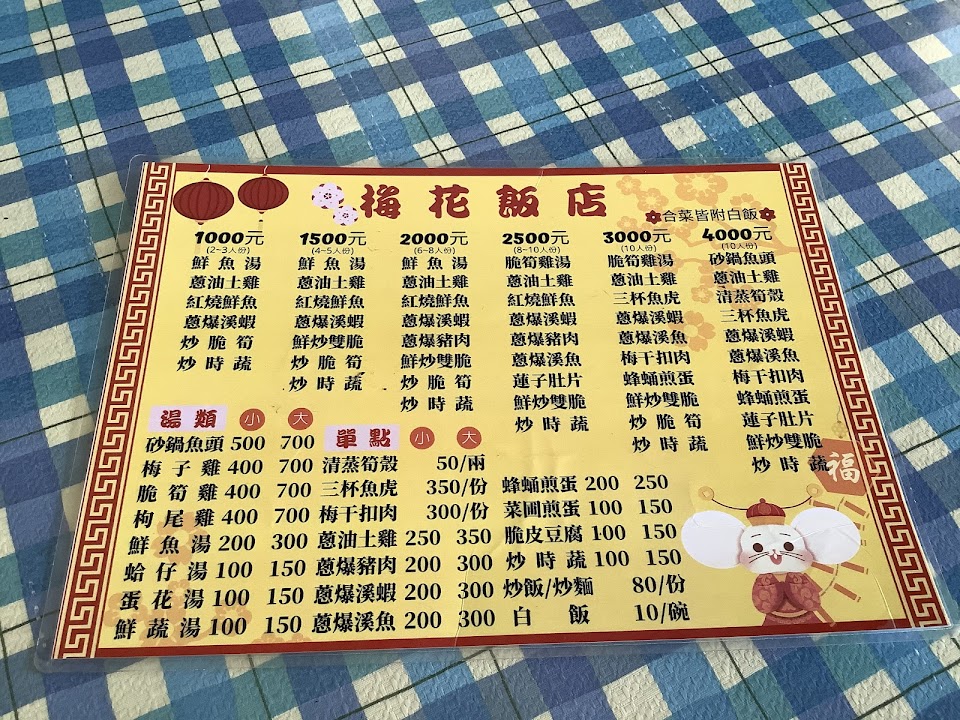 梅花飯店
合菜皆附白飯
1000元
(2~3人份)
鮮魚湯
蔥油土雞
紅燒鮮魚
蔥爆溪蝦
炒脆筍
炒時蔬
1500元
(4~5人份)
鮮魚湯
蔥油土雞
紅燒鮮魚
蔥爆溪蝦
鮮炒雙脆
炒脆筍
炒時蔬
2000元
(6~8人份)
鮮魚湯
蔥油土雞
紅燒鮮魚
蔥爆豬肉
鮮炒雙脆
炒脆筍
炒時蔬
2500元
(8~10人份)
脆筍雞湯
蔥油土雞
蔥爆溪蝦
蔥爆豬肉
蔥爆溪魚
蓮子肚片
鮮炒雙脆
炒時蔬
3000元
(10人份)
脆筍雞湯
蔥油土雞
三杯魚虎
蔥爆溪蝦
蔥爆溪魚
梅干扣肉
蜂蛹煎蛋
鮮炒雙脆
炒脆筍
炒時蔬
4000元
(10人份)
砂鍋魚頭
蔥油土雞
清蒸筍殼
三杯魚虎
蔥爆溪蝦
蔥爆溪魚
梅干扣肉
蜂蛹煎蛋
蓮子肚片
鮮炒雙脆
炒時蔬
湯類 小 大
砂鍋魚頭 500 700
梅子雞 400 700
脆筍雞 400 700
枸尾雞 400 700
鮮魚湯 200 300
蛤仔湯 100 150
蛋花湯 100 150
鮮蔬湯 100 150
單點 小 大
清蒸筍殼 50/兩
三杯魚虎 350/份
梅干扣肉 300/份
蔥油土雞 250 350
蔥爆豬肉 200 300
蔥爆溪蝦 200 300
蔥爆溪魚 200 300
蜂蛹煎蛋 200 250
菜圃煎蛋 100 150
脆皮豆腐 100 150
炒時蔬 100 150
炒飯/炒麵 80/份
白飯 10/碗
福